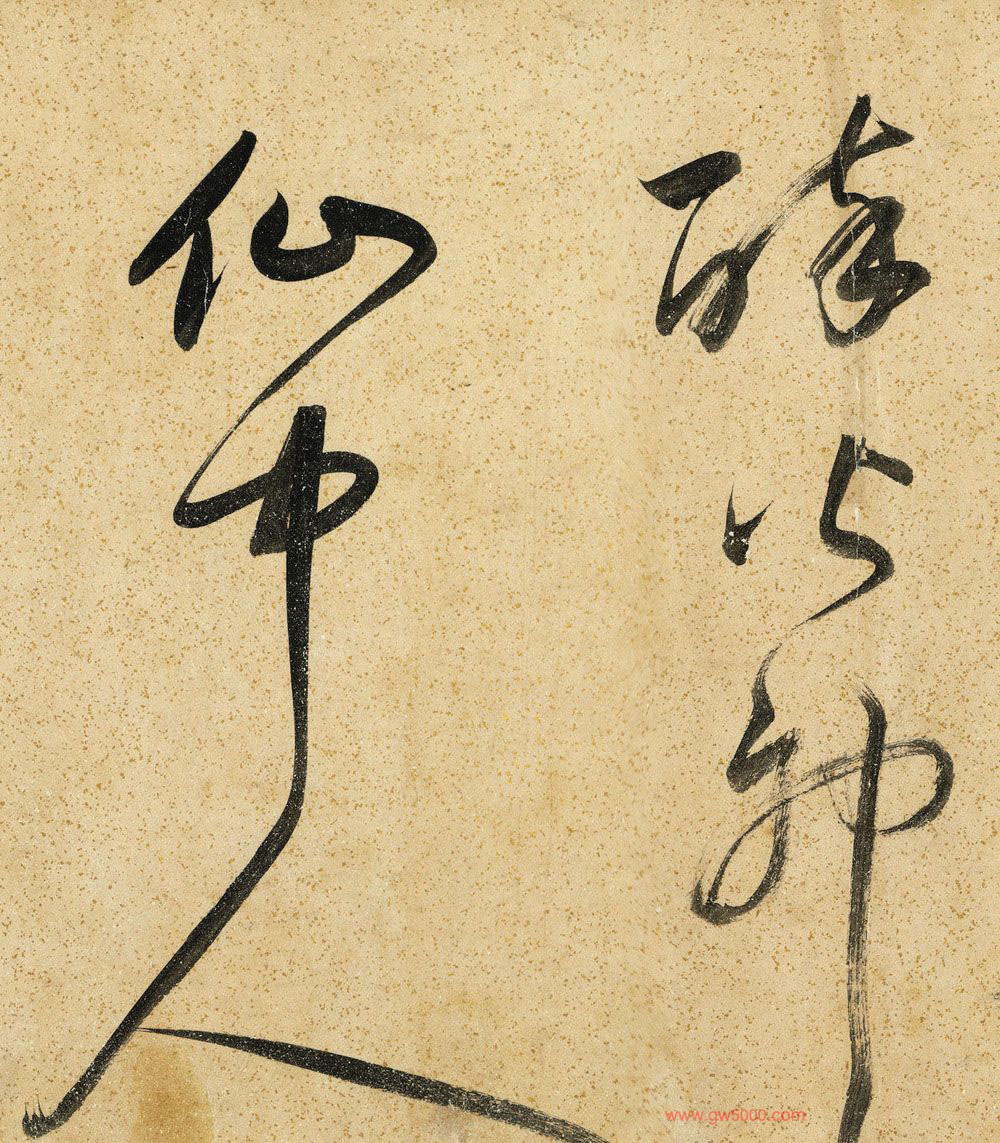 醉神
仙中人
www.gw5000.com